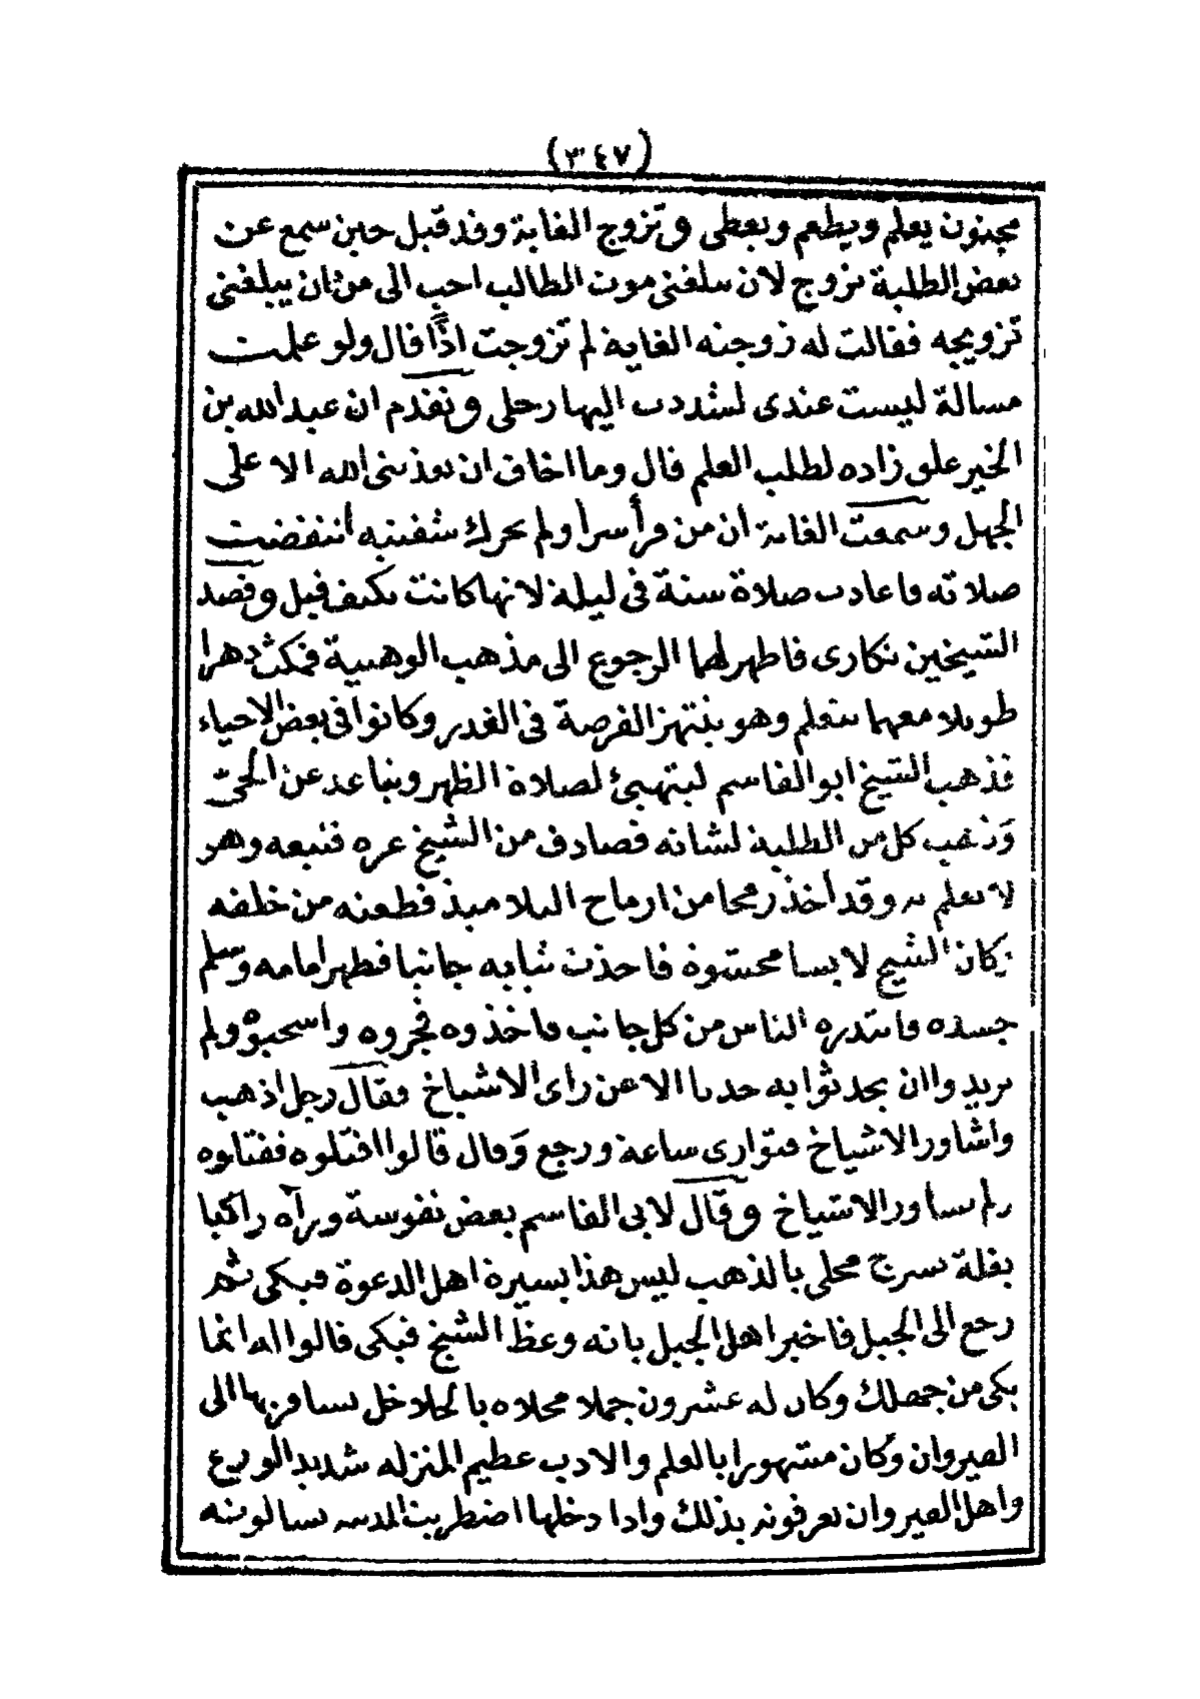 (٣٤٧)
مجنون يعلم ويطعم ويعطى وتزوج الغاية وقد قيل حين سمع عن
بعض الطلبة تزوج لان يبلغنى موت الطالب احب الى من ان يبلغنى
تزويجه فقالت له زوجته الغاية لم تزوجت اذًا قال ولو علمت
مسالة ليست عندى لشددت اليها رحلى وتقدم ان عبد الله بن
الخير علق زاده لطلب العلم قال وما اخاف ان يعذبنى الله الا على
الجهل وسمعت الغاية ان من قرأ سرا ولم يحرك شفتيه انتقضت
صلاته فاعادت صلاة سنة فى ليلة لانها كانت تكيف قيل وقصد
الشيخين نكارى فاظهر لهما الرجوع الى مذهب الوهبية فمكث دهرا
طويلا معهما يتعلم وهو ينتهز الفرصة فى الغدر وكانوا فى بعض الاحياء
فذهب الشيخ ابو القاسم ليتهيئ لصلاة الظهر ويتباعد عن الحىّ
وذهب كل من الطلبة لشانه فصادف من الشيخ غره فتبعه وهو
لا يعلم به وقد اخذ رمحا من ارماح التلاميذ فطعنه من خلفه
وكان الشيخ لابسا محشوة فاخذت ثيابه جانبا فظهر امامه وسلم
جسده فابتدره الناس من كل جانب فاخذوه فجروه واسحبوه ولم
يريدوا ان يحدثوا به حدثا الا عن راى الاشياخ وقال رجل اذهب
واشاور الاشياخ فتوارى ساعة ورجع وقال قالوا اقتلوه فقتلوه
ولم يشاور الاشياخ وقال لابى القاسم بعض نفوسة ورآه راكبا
بغلة بسرج محلى بالذهب ليس هذا بسيرة اهل الدعوة فبكى ثم
رجع الى الجبل فاخبر اهل الجبل بانه وعظ الشيخ فبكى قالوا له انما
بكى من جهلك وكان له عشرون جملا محلاه بالجلاجل يسافر بها الى
القيروان وكان مشهورا بالعلم والادب عظيم المنزله شديد الورع
واهل القيروان يعرفونه بذلك واذا دخلها اضطربت المدينه يسالونه